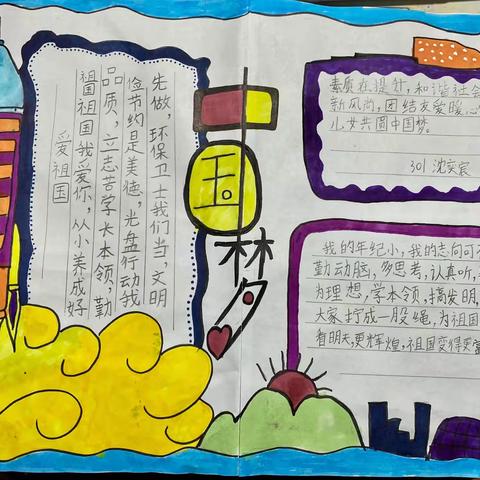 爱祖国
祖国祖国我爱你，从小养成好
品质，立志苦学长本领，勤
俭节约是美德，光盘行动我
先做，环保卫士我们当，文明
中国梦
素质在提升，和谐社会
新风尚，团结友爱暖
儿女共圆中国梦。
301 沈奕宸
我的年纪小，我的志向可
勤动脑，多思考，认真听，
为理想，学本领，搞发明，
大家拧成一股绳，为祖国
看明天，更辉煌，祖国变得更